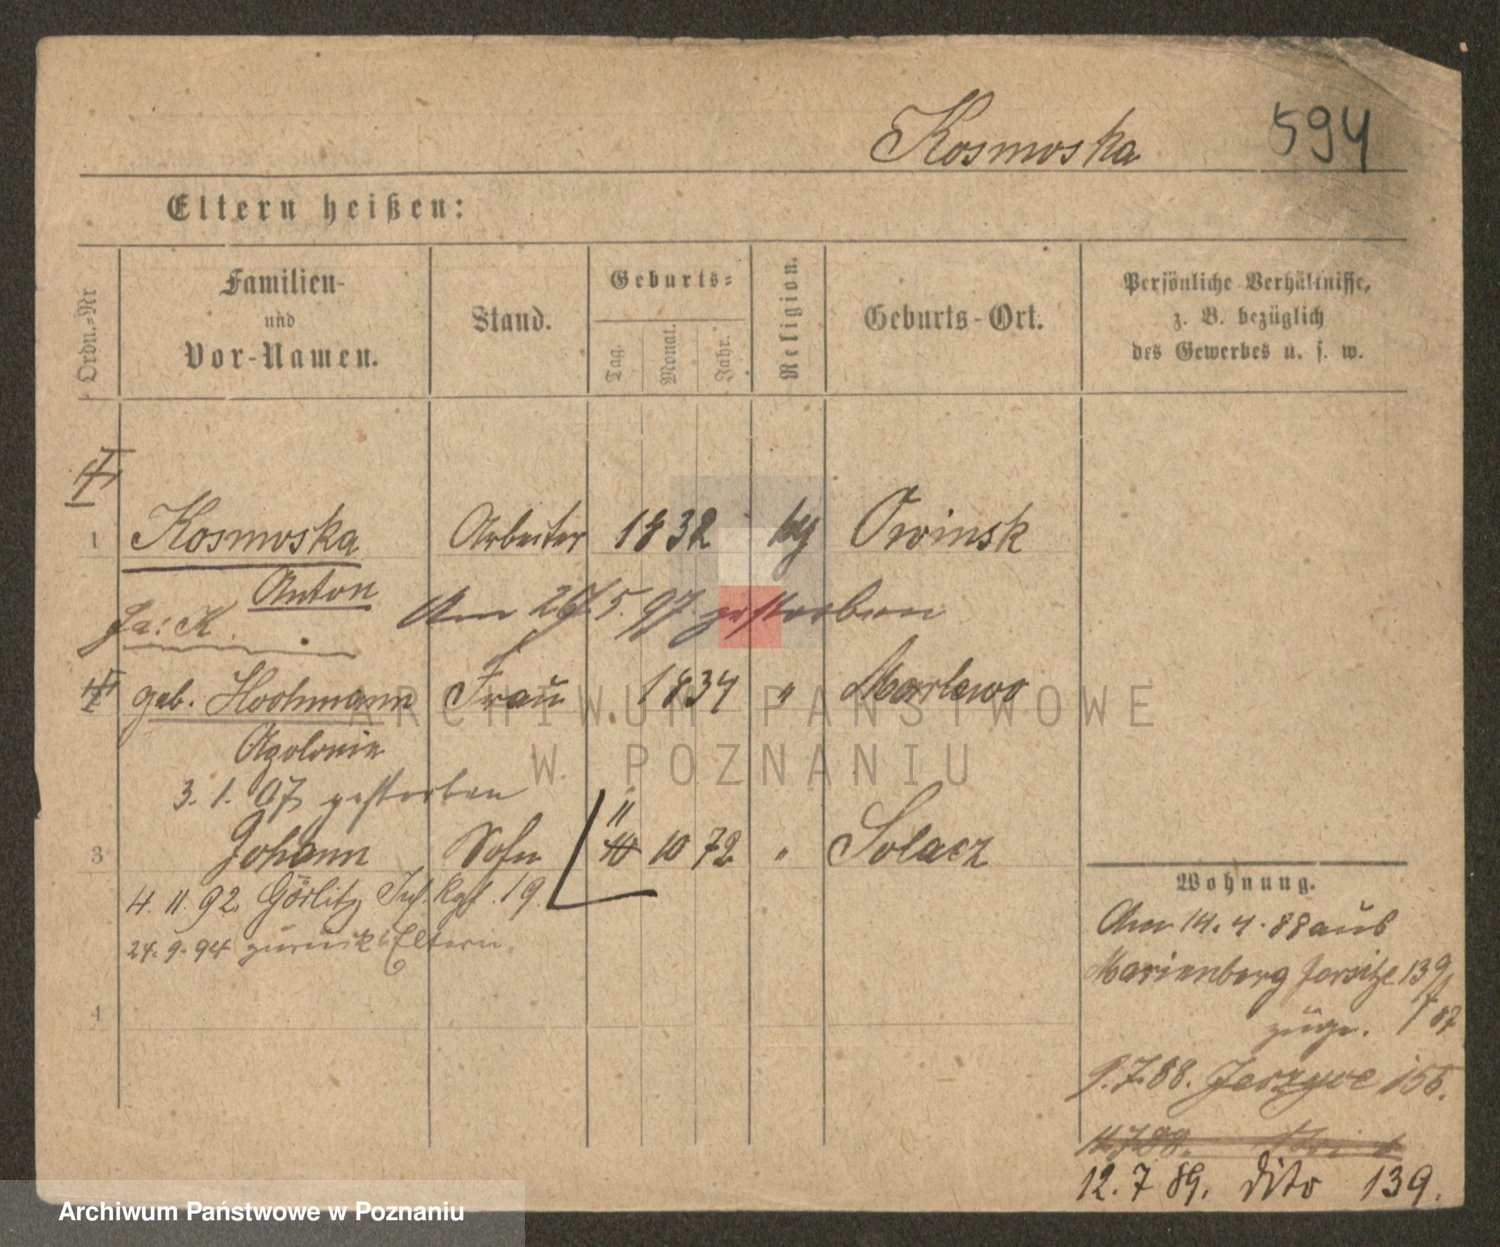 Kosmoska 594
Eltern heißen:
Ordn.-Nr
Familien-
und
Vor-Namen.
Stand.
Geburts-
Tag. Monat. Jahr.
Religion.
Geburts-Ort.
Persönliche Verhältnisse,
z. B. bezüglich
des Gewerbes u. s. w.
1 Kosmoska Arbeiter 1832 Owinsk
Anton
Am 26. 5. 97. gestorben
geb. Hochmann Frau 1834 " Marlewo
Apolonie
3. 1. 07 gestorben
3 Johann Sohn 11 10 10 72 " Solacz
4. 11. 92. Görlitz Inf. Rgt. 19.
24. 9. 94 zurück Eltern.
4
Wohnung.
Am 14. 4. 88 aus
Marienberg Jersitze 139
87
9. 7. 88. 156.
11.7.88.
12. 7 89. dito 139.
ARCHIWUM PAŃSTWOWE
W POZNANIU
Archiwum Państwowe w Poznaniu